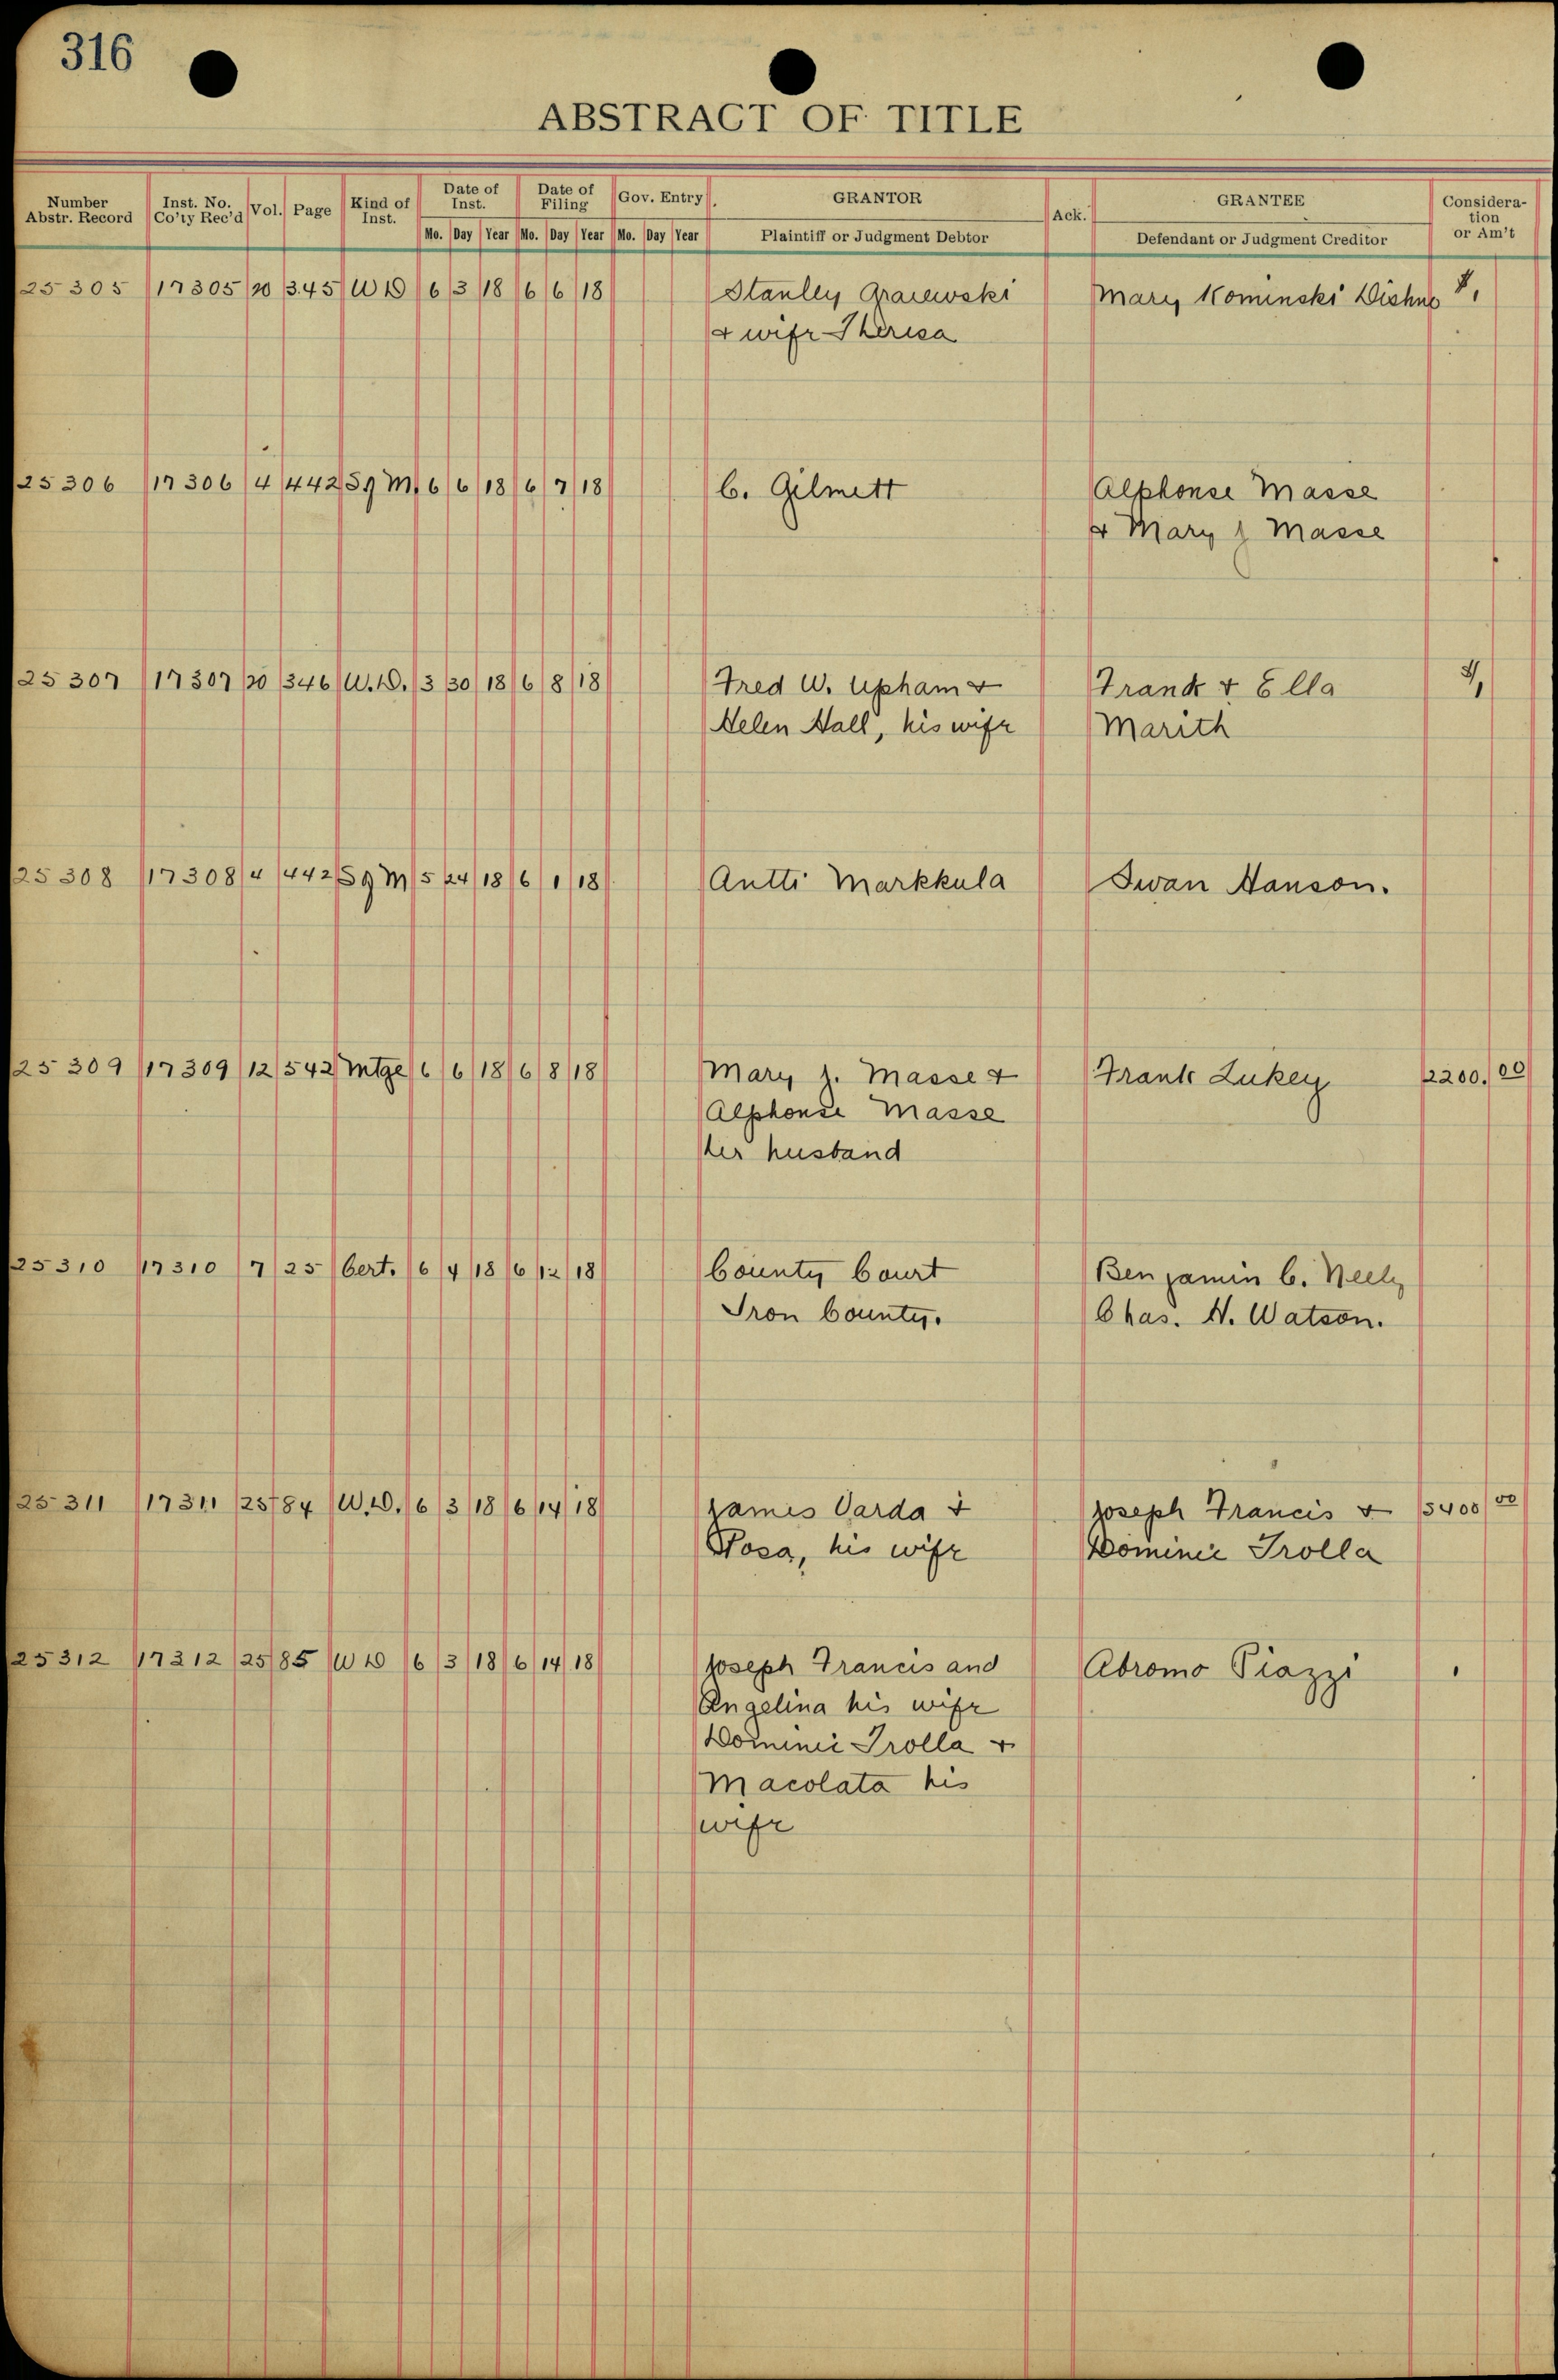 316
ABSTRACT OF TITLE
Number Abstr. Record Inst. No. Co'ty Rec'd Vol. Page Kind of Inst. Date of Inst. Date of Filing Gov. Entry GRANTOR Ack. GRANTEE Consideration or Am't
Mo. Day Year Mo. Day Year Mo. Day Year Plaintiff or Judgment Debtor Defendant or Judgment Creditor
25305 17305 20 345 WD 6 3 18 6 6 18 Stanley Mary Kominski
& wife Theresa
25306 17306 4 442 Sg M. 6 6 18 6 7 18 C. Gilmett Alphonse Masse
& Mary J Masse
25307 17307 20 346 W.D. 3 30 18 6 8 18 Fred W. Upham & Frank & Ella
Helen Hall, his wife Marith
25308 17308 4 442 Sg M 5 24 18 6 1 18 Antti Markkula Swan Hanson.
25309 17309 12 542 Mtge 6 6 18 6 8 18 Mary J. Masse & Frank Lukey 2200.00
Alphonse Masse
her husband
25310 17310 7 25 Cert. 6 4 18 6 12 18 County Court Benjamin C. Neely
Iron County. Chas. H. Watson.
25311 17311 25 84 W.D. 6 3 18 6 14 18 James Varda & Joseph Francis & 5400 00
Rosa, his wife Dominic Trolla
25312 17312 25 85 WD 6 3 18 6 14 18 Joseph Francis and Abromo Piazzi
Angelina his wife
Dominic Trolla &
Macolata his
wife